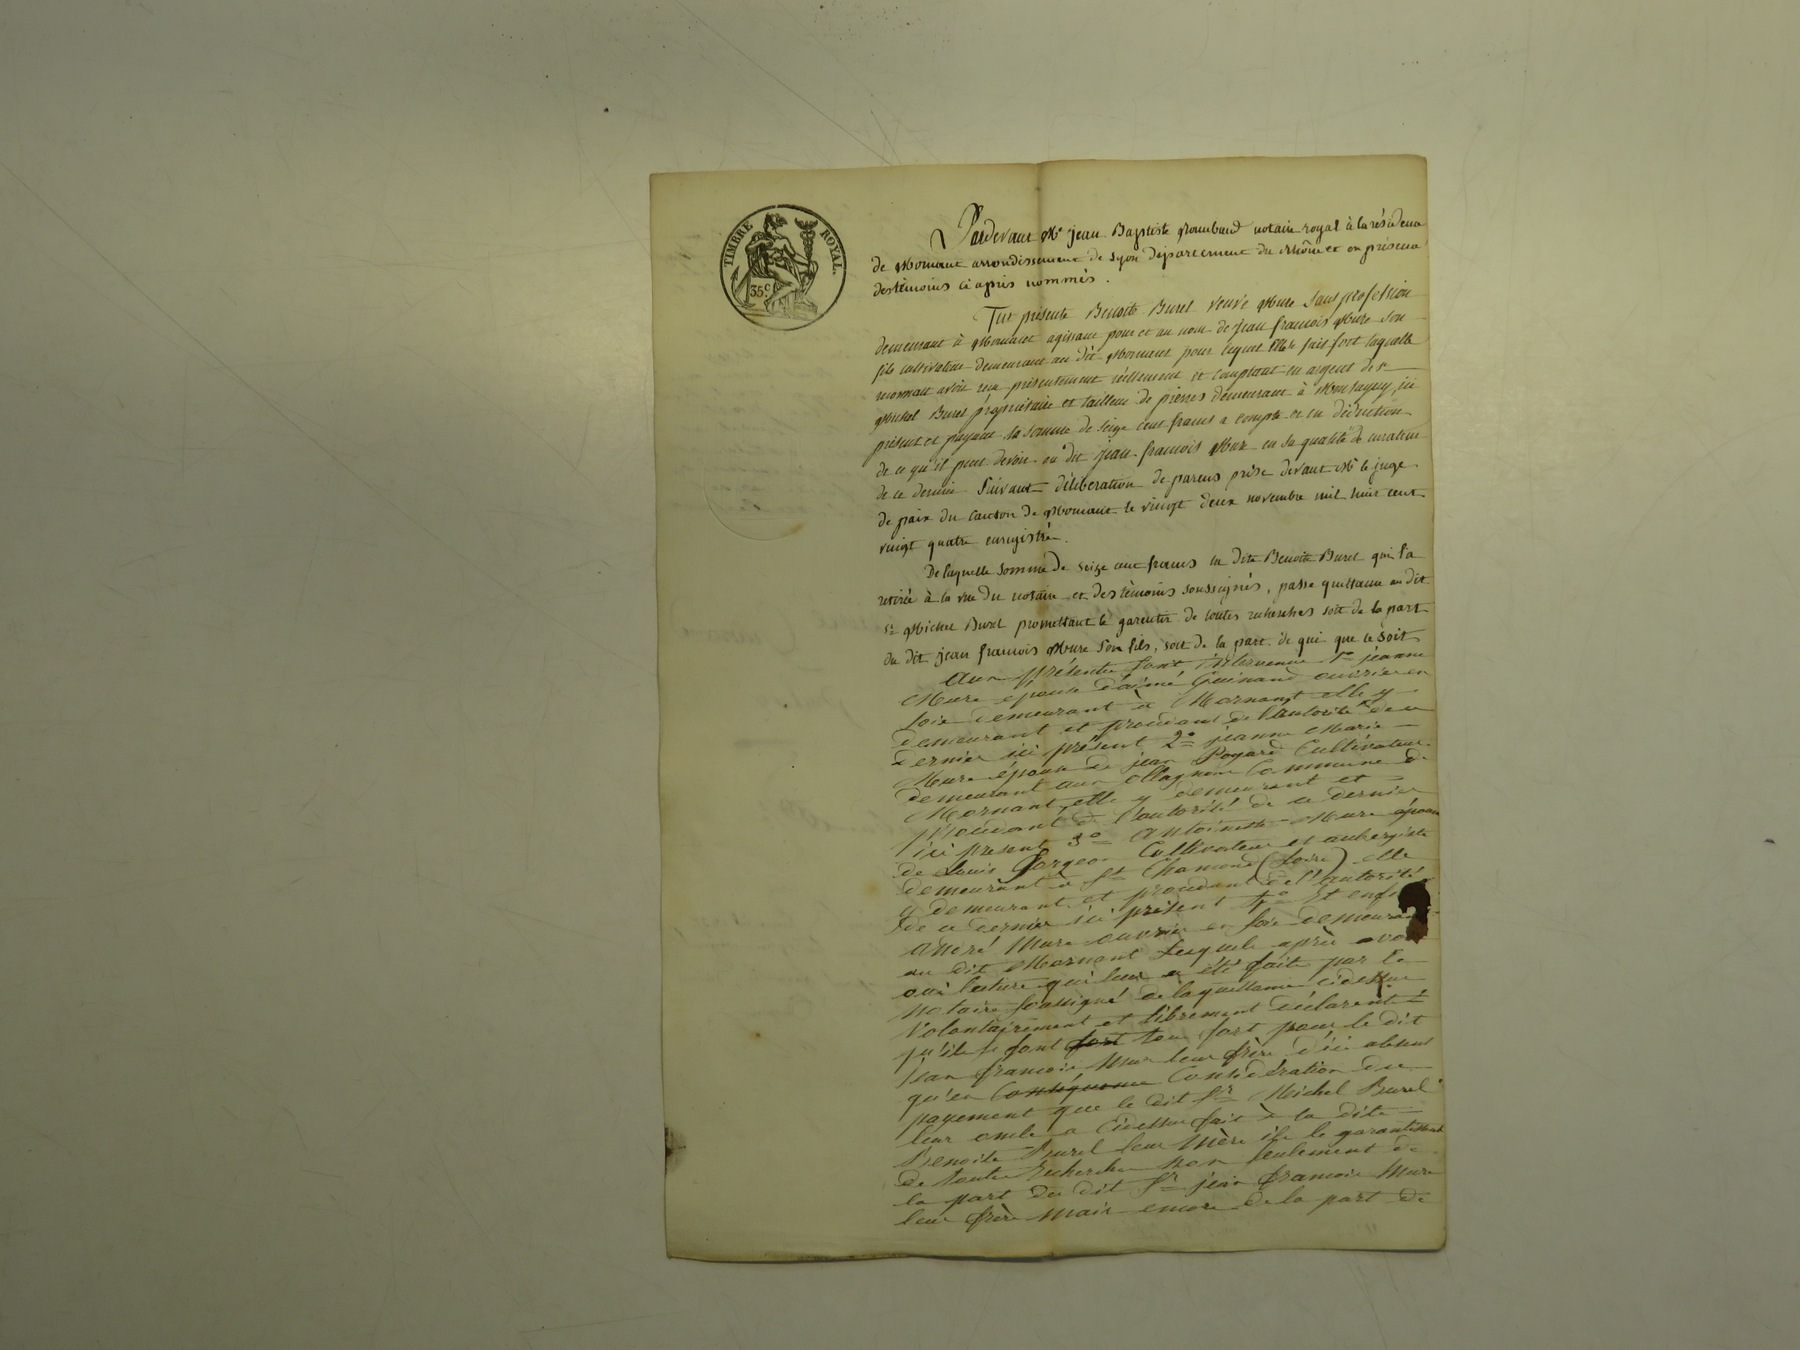 TIMBRE ROYAL.
35 c.
Pardevant Me jean Baptiste notaire royal à la résidence
de Mornant arrondissement de Lyon département du Rhône et en présence
des témoins ci après nommés.
Fut présente Benoite Burel veuve Mure sans profession
demeurant à Mornant agissant pour et au nom de jean francois Mure son
fils cultivateur demeurant au dit Mornant pour lequel Elle se fait fort laquelle
reconnait avoir reçu présentement réellement et comptant en argent de sr
Michel Burel propriétaire et tailleur de pierres demeurant à ici
présent et payant la somme de seize cent francs a compte et en déduction
de ce qu'il peut devoir au dit jean francois Mure en sa qualité de curateur
de ce dernier Suivant déliberation de parens prise devant Mr le juge
de paix du canton de Mornant le vingt deux novembre mil huit cent
vingt quatre enregistré.
De laquelle somme de seize cent francs la dite Benoite Burel qui l'a
retirée à la vue du notaire et des témoins soussignés, passe quittance au dit
sr Michel Burel promettant le garentir de toutes recherches soit de la part
du dit jean francois Mure son fils, soit de la part de qui que ce soit
aux présentes sont intervenus 1o jeanne
Mure épouse d'aimé Guinand ouvrier en
soie demeurant à Mornant elle y
demeurant et procédant de l'autorité de ce
dernier ici présent 2o jeanne Marie
Mure épouse de jean Poyard Cultivateur
demeurant aux Commune de
Mornant elle y demeurant et
procédant de l'autorité de ce dernier
ici présent 3o Antoinette Mure épouse
de Louis Cultivateur et aubergiste
demeurant à St Chamond (Loire) elle
y demeurant et procédant de l'autorité
de ce dernier ici présent 4o Et enfin
André Mure ouvrier en soie demeurant
au dit Mornant Lesquels après avoir
oui lecture qui leur a été faite par le
notaire soussigné de la quittance cidessus
Volontairement et librement déclarent
qu'ils se font fort tous fort pour le dit
jean francois Mure leur frère d'ici absent
qu'en Conséquence Considération du
payement que le dit Sr Michel Burel
leur oncle a cidessus fait à la dite
Benoite Burel leur mère ils le garantissent
de toutes recherches non seulement de
la part du dit Sr jean francois Mure
leur frère mais encore de la part de